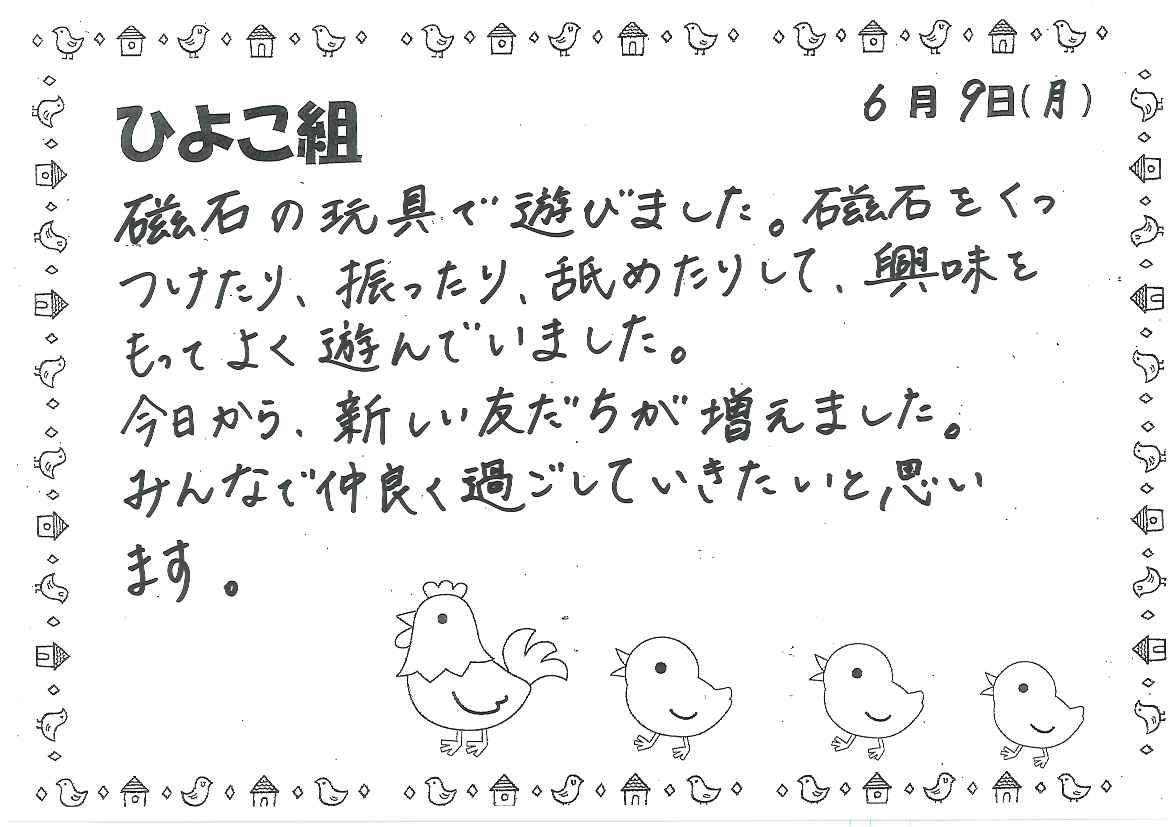 6月9日(月)
ひよこ組
磁石の玩具で遊びました。磁石をくっ
つけたり、振ったり、舐めたりして、興味を
もってよく遊んでいました。
今日から、新しい友だちが増えました。
みんなで仲良く過ごしていきたいと思い
ます。